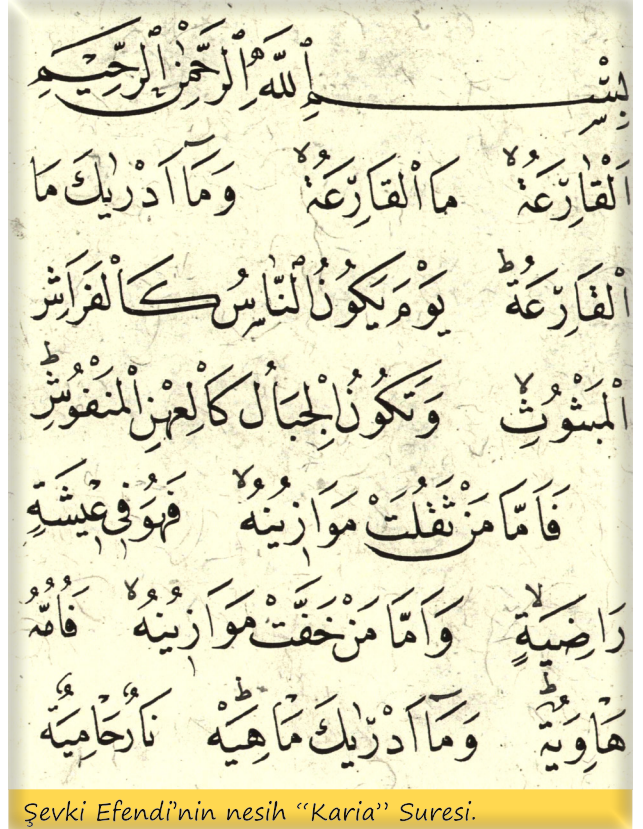 بِسْمِ اللّٰهِ الرَّحْمٰنِ الرَّحِيمِ
اَلْقَارِعَةُ ۙ مَا الْقَارِعَةُ ۙ وَمَٓا اَدْرٰيكَ مَا
الْقَارِعَةُ ۜ يَوْمَ يَكُونُ النَّاسُ كَالْفَرَاشِ
الْمَبْثُوثِ ۙ وَتَكُونُ الْجِبَالُ كَالْعِهْنِ الْمَنْفُوشِ ۜ
فَاَمَّا مَنْ ثَقُلَتْ مَوَازِينُهُ ۙ فَهُوَ فِى عِيشَةٍ
رَاضِيَةٍ ۙ وَاَمَّا مَنْ خَفَّتْ مَوَازِينُهُ ۙ فَاُمُّهُ
هَاوِيَةٌ ۜ وَمَٓا اَدْرٰيكَ مَا هِيَهْ ۜ نَارٌ حَامِيَةٌ
Şevki Efendi’nin nesih “Karia” Suresi.